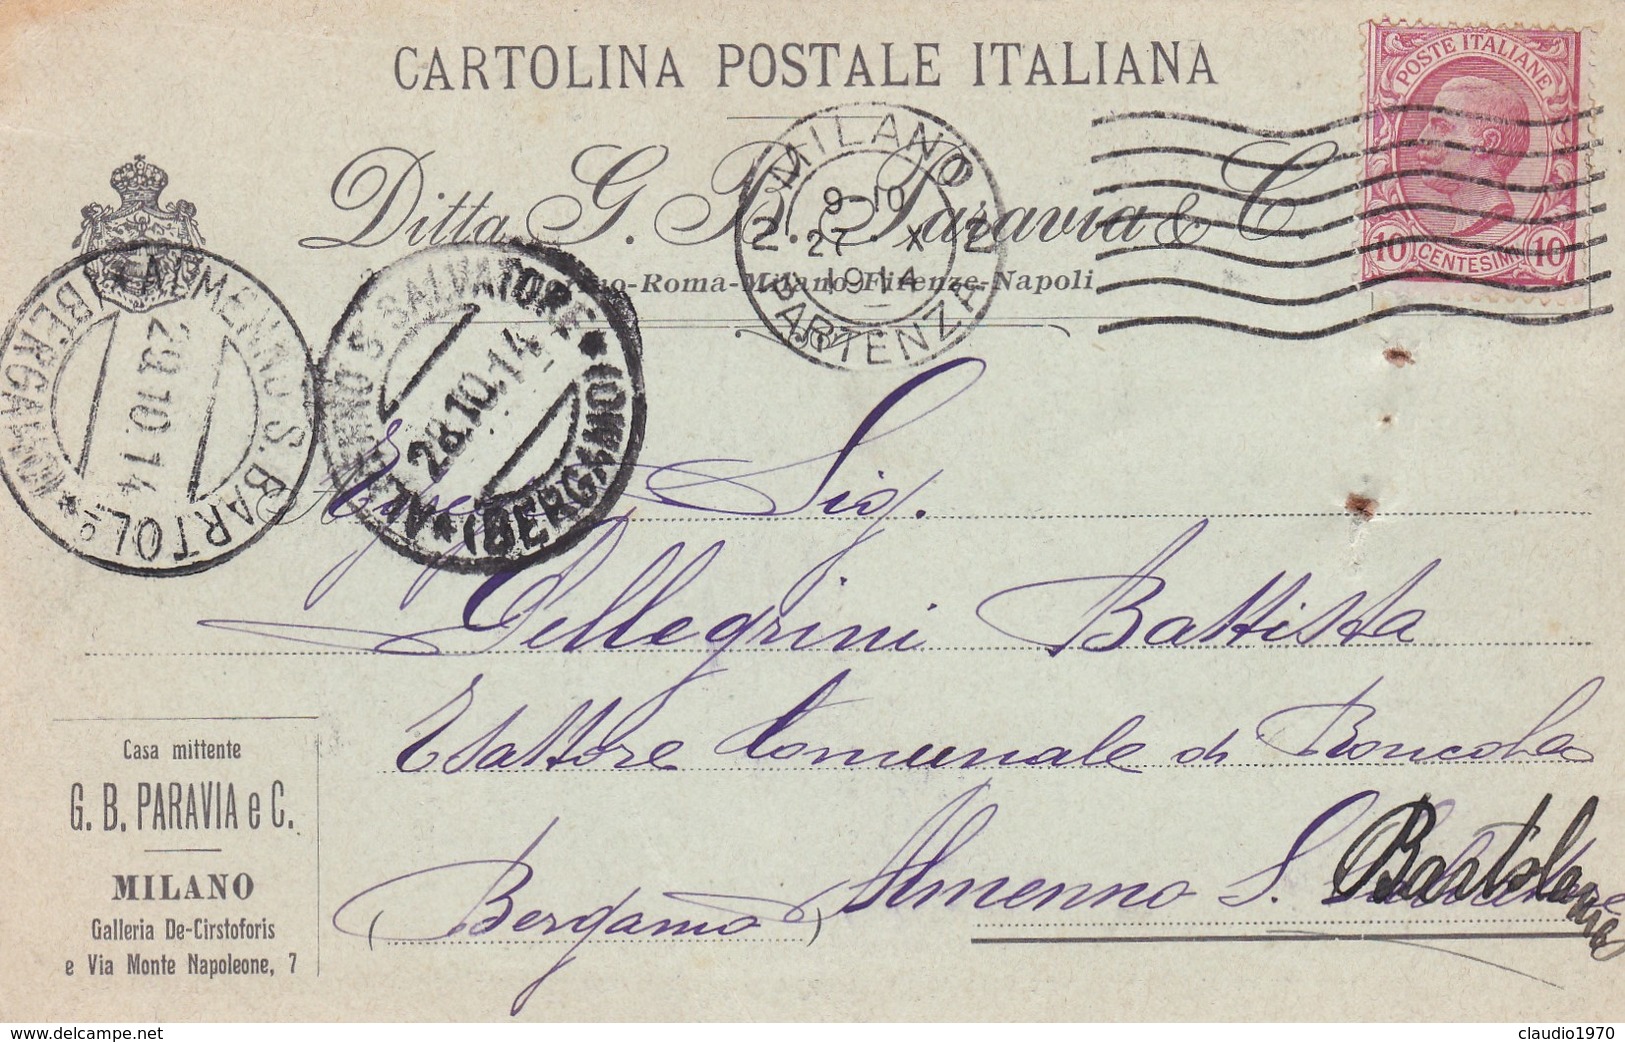 CARTOLINA POSTALE ITALIANA
POSTE ITALIANE
10 CENTESIMI 10
Ditta G. B. Paravia & C.
Torino-Roma-Milano-Firenze-Napoli
MILANO
9-10
27 · X
1914
2 2
PARTENZA
ALMENNO S. BARTOLº
(BERGAMO)
29.10.14
ALMENNO S. SALVATORE
28.10.14
(BERGAMO)
Sig.
Pellegrini Battista
Esattore Comunale di Roncola
Almenno S. Salvatore
Bartolomeo
(Bergamo)
Casa mittente
G. B. PARAVIA e C.
MILANO
Galleria De-Cirstoforis
e Via Monte Napoleone, 7
www.delcampe.net
claudio1970